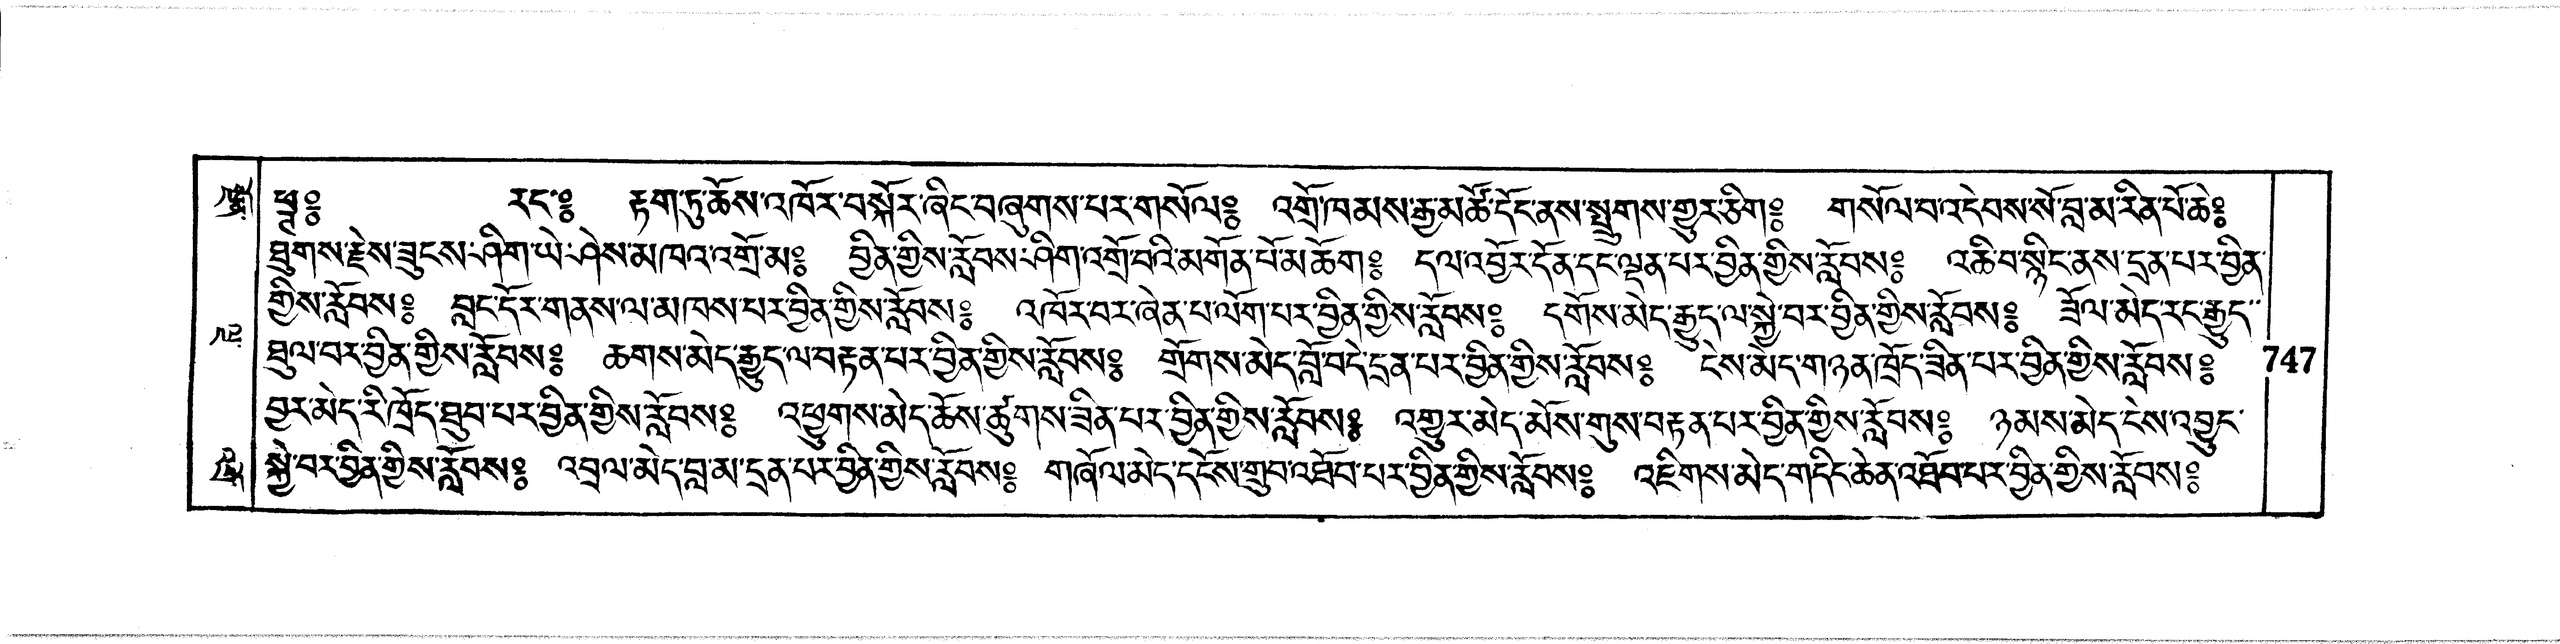 ཕྲྀ༔ རང་༔ རྟག་ཏུ་ཆོས་འཁོར་བསྐོར་ཞིང་བཞུགས་པར་གསོལ༔ འགྲོ་ཁམས་རྒྱ་མཚོ་དོང་ནས་སྤྲུགས་གྱུར་ཅིག༔ གསོལ་བ་འདེབས་སོ་བླ་མ་རིན་པོ་ཆེ༔
ཐུགས་རྗེས་ཟུངས་ཤིག་ཡེ་ཤེས་མཁའ་འགྲོ་མ༔ བྱིན་གྱིས་རློབས་ཤིག་འགྲོ་བའི་མགོན་པོ་མཆོག༔ དལ་འབྱོར་དོན་དང་ལྡན་པར་བྱིན་གྱིས་རློབས༔ འཆི་བ་སྙིང་ནས་དྲན་པར་བྱིན་
གྱིས་རློབས༔ བླང་དོར་གནས་ལ་མཁས་པར་བྱིན་གྱིས་རློབས༔ འཁོར་བར་ཞེན་པ་ལོག་པར་བྱིན་གྱིས་རློབས༔ དགོས་མེད་རྒྱུད་ལ་སྐྱེ་བར་བྱིན་གྱིས་རློབས༔ ཟོལ་མེད་རང་རྒྱུད་
ཐུལ་བར་བྱིན་གྱིས་རློབས༔ ཆགས་མེད་རྒྱུད་ལ་བརྟན་པར་བྱིན་གྱིས་རློབས༔ གྲོགས་མེད་བློ་བདེ་དྲན་པར་བྱིན་གྱིས་རློབས༔ ངེས་མེད་གཉན་ཁྲོད་ཟིན་པར་བྱིན་གྱིས་རློབས༔
747
བྱར་མེད་རི་ཁྲོད་ཐུབ་པར་བྱིན་གྱིས་རློབས༔ འཕྱུགས་མེད་ཆོས་ཚུགས་ཟིན་པར་བྱིན་གྱིས་རློབས༔ འགྱུར་མེད་མོས་གུས་བརྟན་པར་བྱིན་གྱིས་རློབས༔ ཉམས་མེད་ངེས་འབྱུང་
སྐྱེ་བར་བྱིན་གྱིས་རློབས༔ འབྲལ་མེད་བླ་མ་དྲན་པར་བྱིན་གྱིས་རློབས༔ གཞོལ་མེད་དངོས་གྲུབ་འཐོབ་པར་བྱིན་གྱིས་རློབས༔ འཇིགས་མེད་གདིང་ཆེན་འཐོབ་པར་བྱིན་གྱིས་རློབས༔